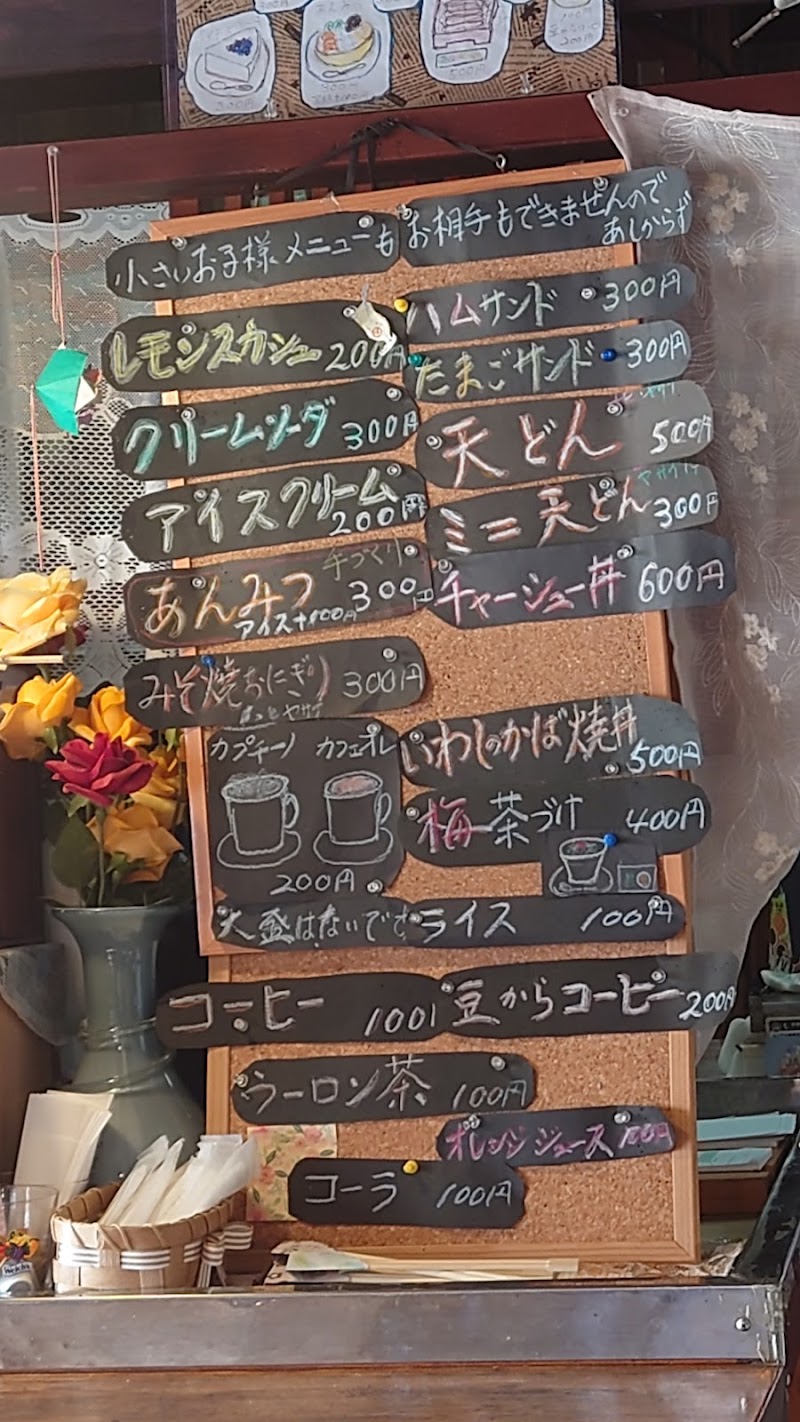 300円
500円
200円
小さいお子様メニューも
お相手もできませんので
あしからず
レモンスカシュ 200円
ハムサンド 300円
たまごサンド 300円
クリームソーダ 300円
天どん 500円
アイスクリーム
200円
ミニ天どん 300円
あんみつ 手づくり
300円
アイス+100円
チャーシュー丼 600円
みそ焼おにぎり 300円
カプチーノ カフェオレ
200円
いわしのかば焼丼
500円
梅茶づけ 400円
大盛はないです
ライス 100円
コーヒー 100
豆からコーヒー 200円
ウーロン茶 100円
オレンジジュース 100円
コーラ 100円